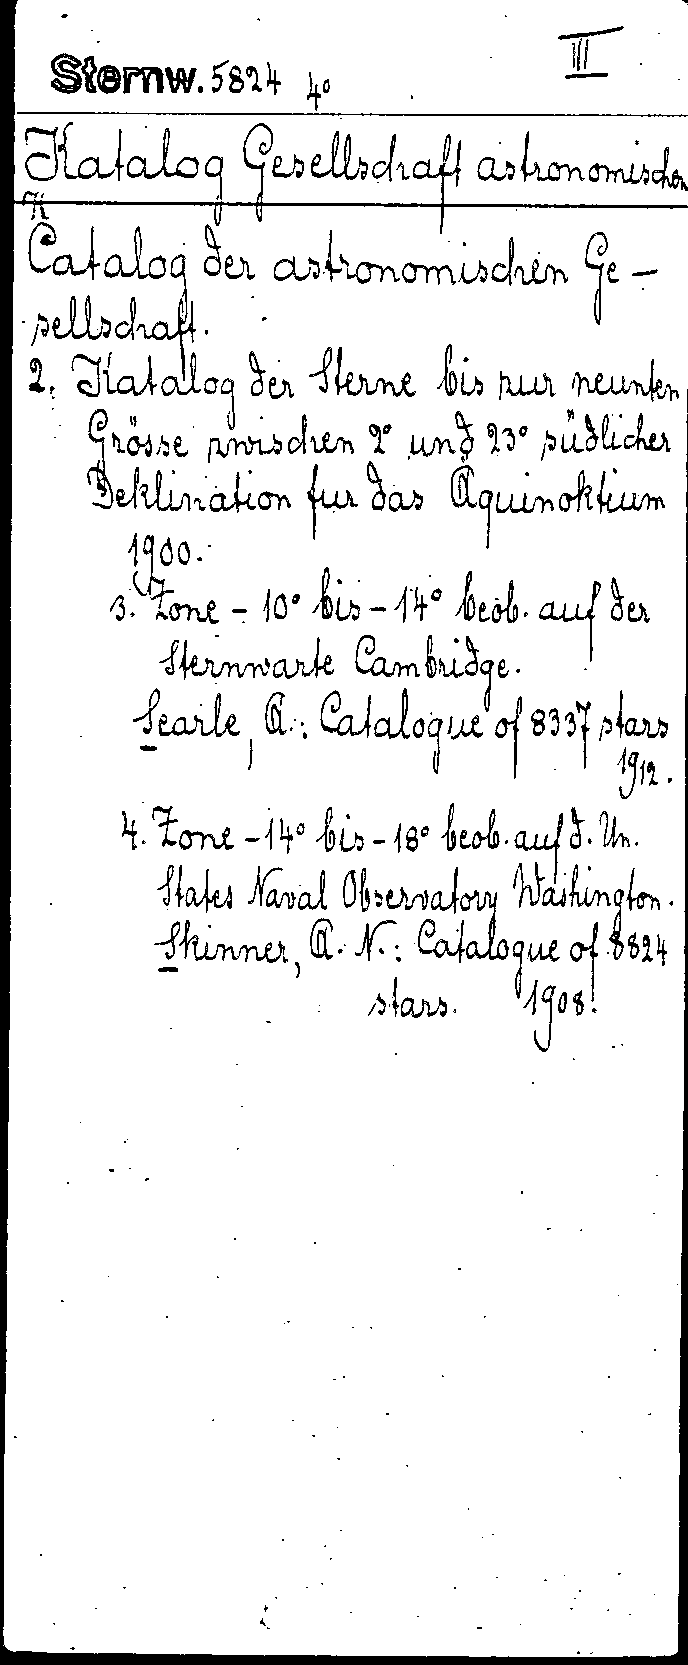 Sternw. 5824 4° III
Katalog Gesellschaft astronomischen
K
Catalog der astronomischen Ge-
sellschaft.
2. Katalog der Sterne bis zur neunten
Grösse zwischen 2° und 23° südlicher
Deklination fur das Äquinoktium
1900.
3. Zone - 10° bis - 14° beob. auf der
Sternwarte Cambridge.
Searle, A.: Catalogue of 8337 stars
1912.
4. Zone - 14° bis - 18° beob. auf d. Un.
States Naval Observatory Washington.
Skinner, A. N.: Catalogue of 8824
stars. 1908.